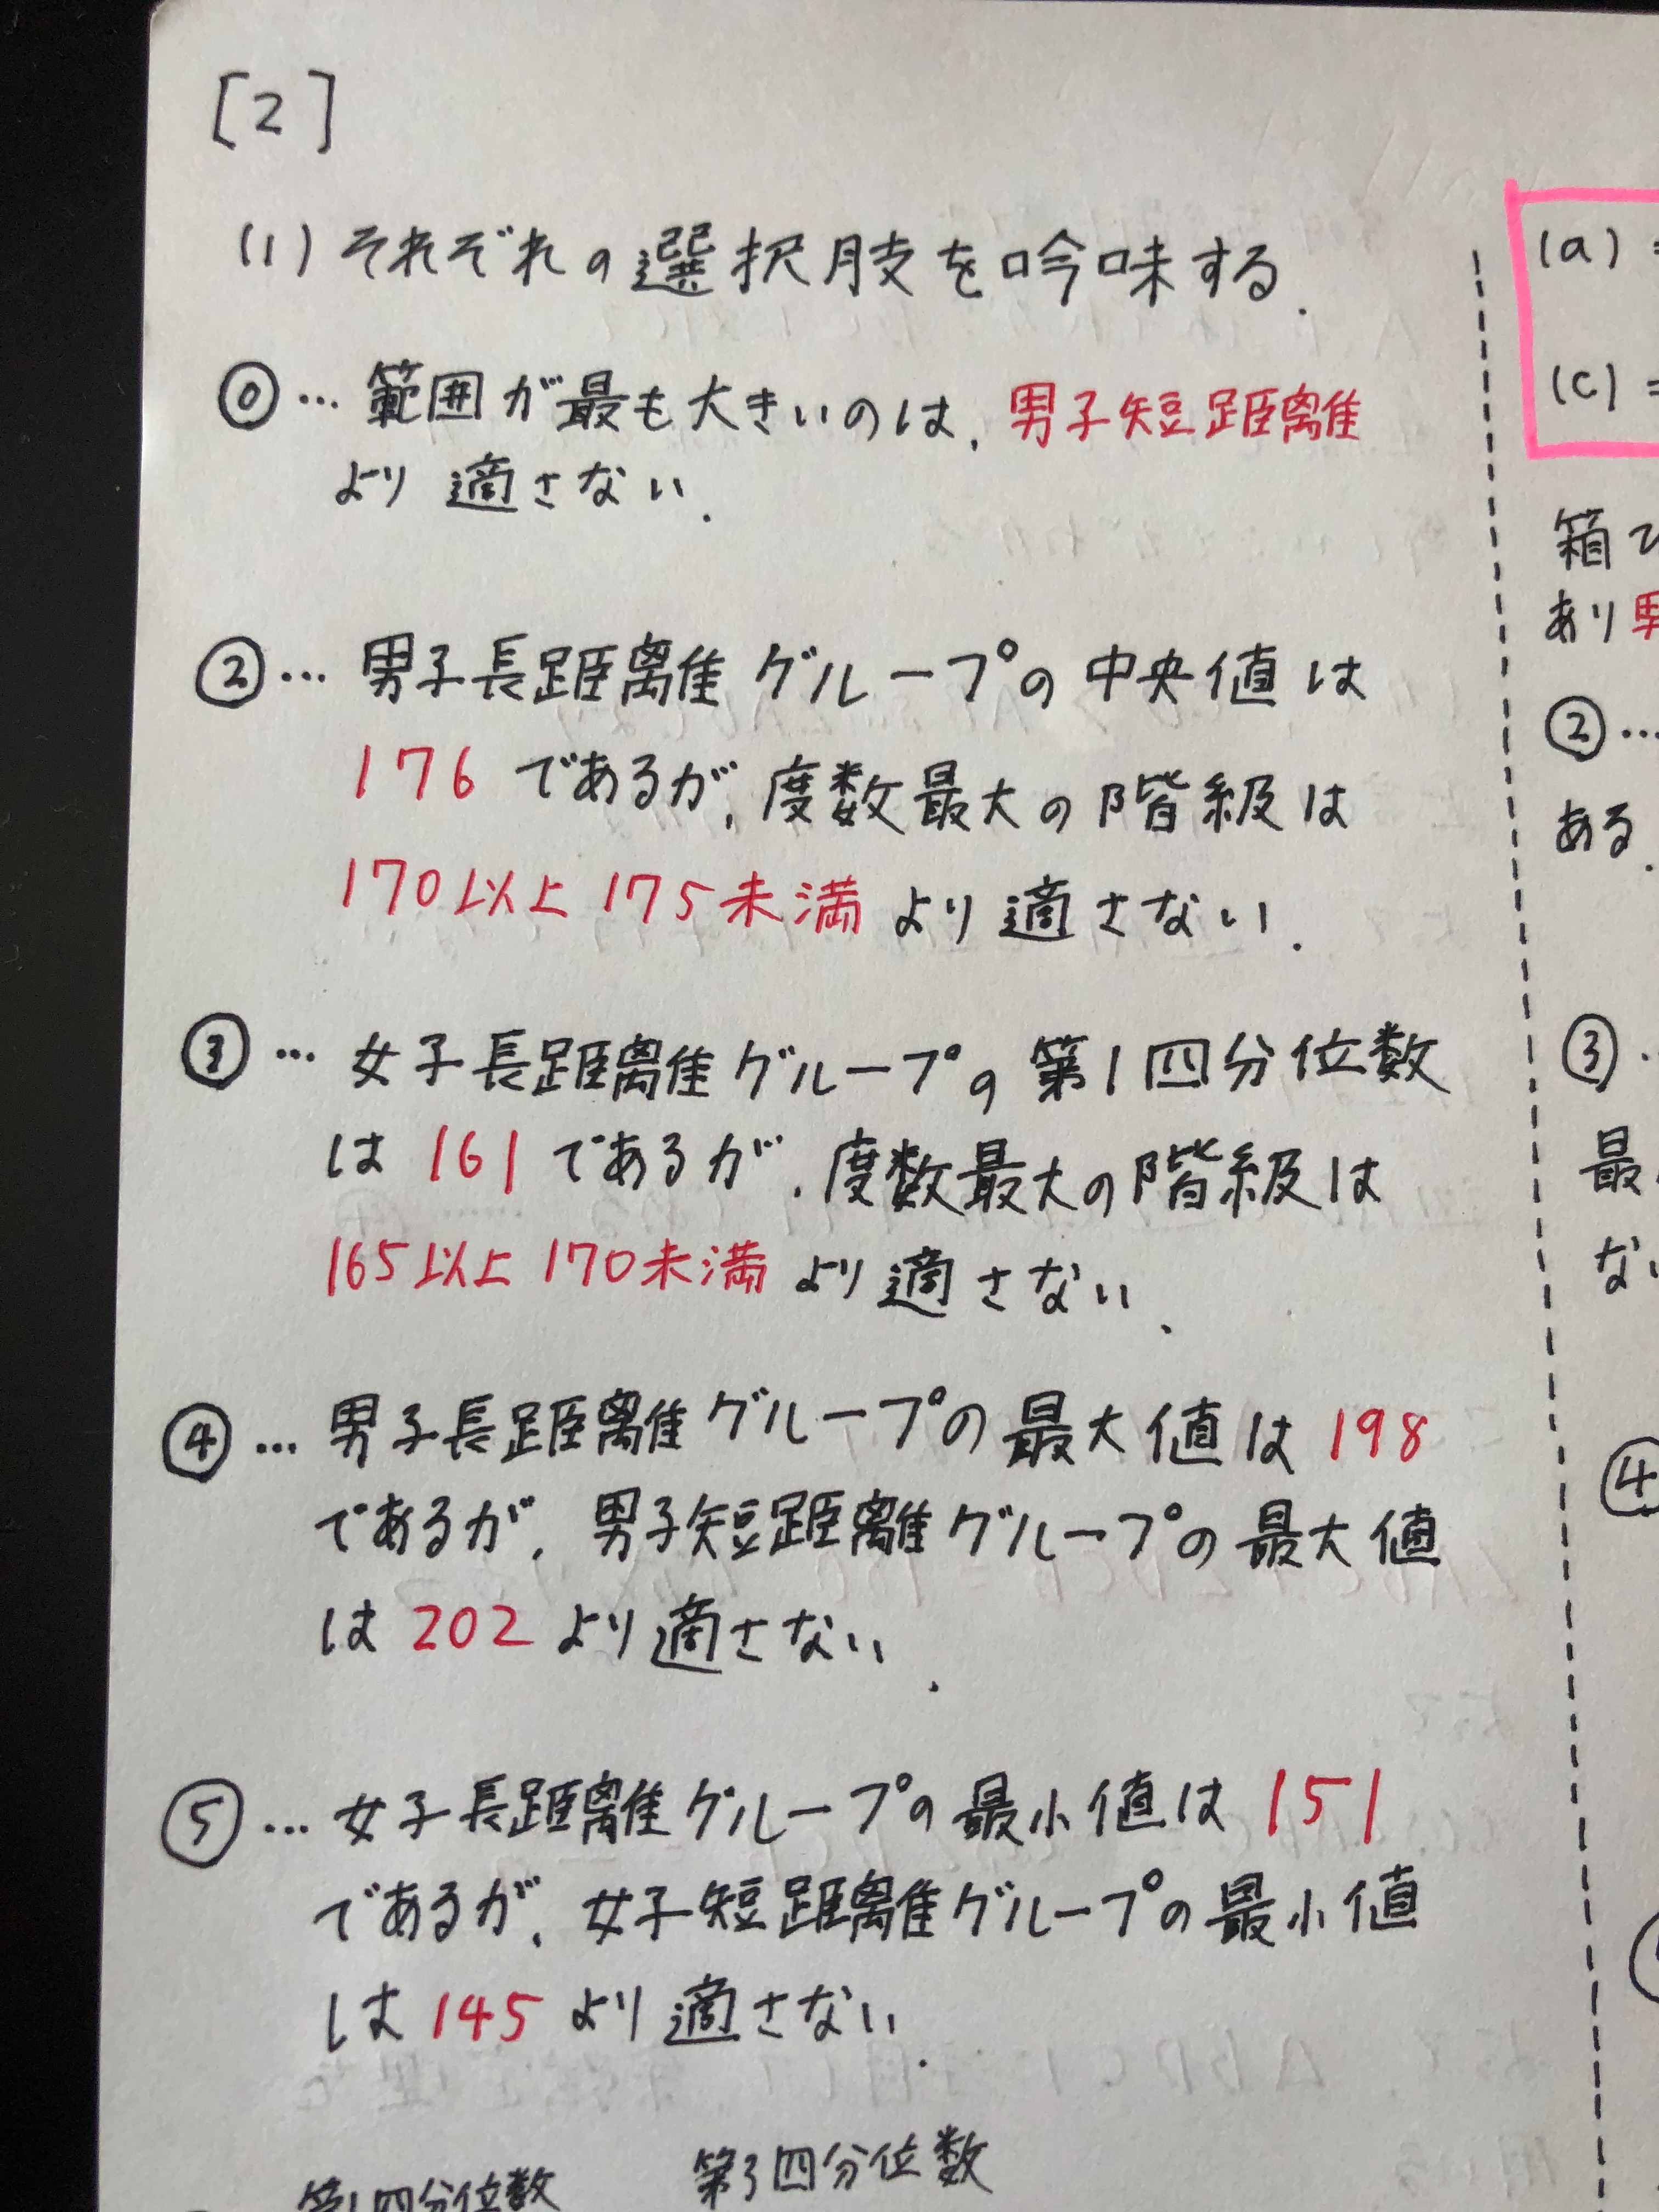 [2]
(1) それぞれの選択肢を吟味する.
⓪… 範囲が最も大きいのは, 男子短距離
より適さない.
②… 男子長距離グループの中央値は
176 であるが, 度数最大の階級は
170以上 175未満 より適さない.
③… 女子長距離グループの第1四分位数
は 161 であるが, 度数最大の階級は
165以上 170未満 より適さない.
④… 男子長距離グループの最大値は 198
であるが, 男子短距離グループの最大値
は 202 より適さない.
⑤… 女子長距離グループの最小値は 151
であるが, 女子短距離グループの最小値
は 145 より適さない.
第1四分位数 第3四分位数
(a) =
(c) =
箱ひ
あり男
②…
ある.
③
最
な
④